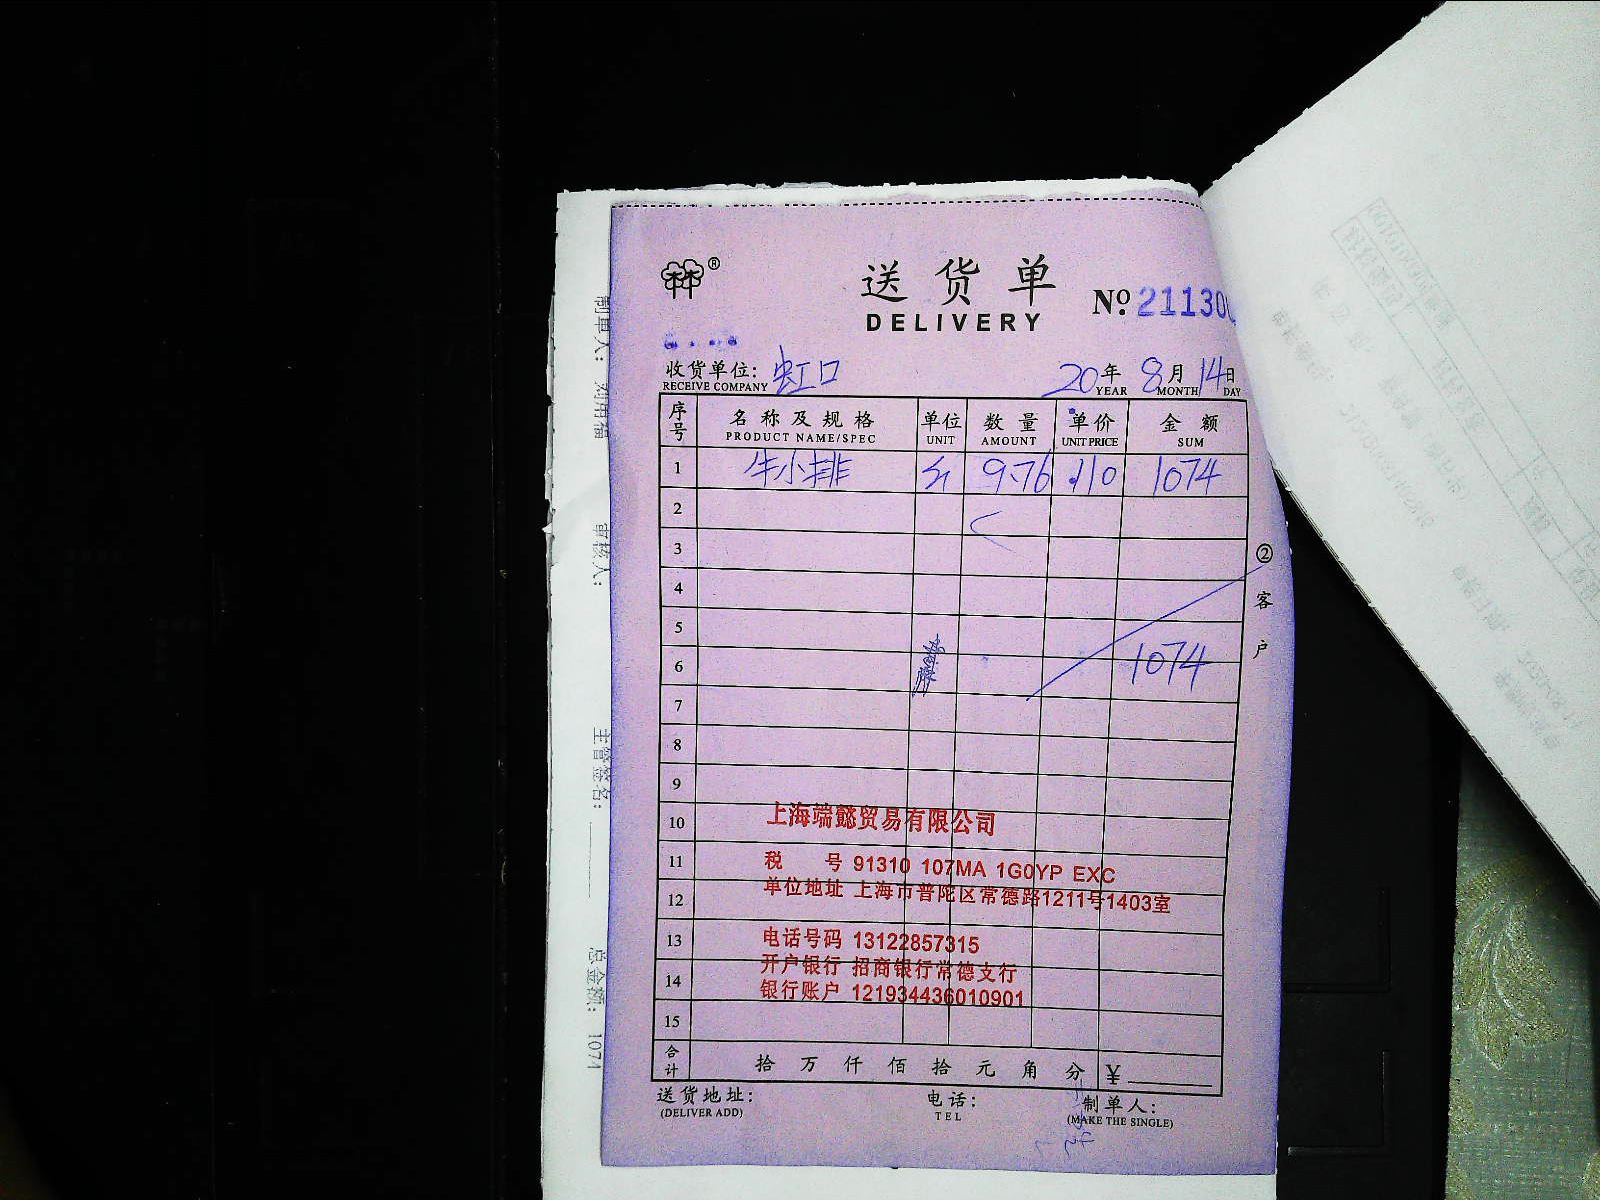 送货单
DELIVERY
No. 21130
收货单位: 虹口
RECEIVE COMPANY
20年 8月 14日
YEAR MONTH DAY
序号 名称及规格 单位 数量 单价 金额
PRODUCT NAME/SPEC UNIT AMOUNT UNIT PRICE SUM
1 牛小排 9.76 110 1074
2
3
4
5
6 1074
7
8
9
10
11
12
13
14
15
② 客户
上海端懿贸易有限公司
税 号 91310 107MA 1G0YP EXC
单位地址 上海市普陀区常德路1211号1403室
电话号码 13122857315
开户银行 招商银行常德支行
银行账户 121934436010901
合计 拾 万 仟 佰 拾 元 角 分 ¥
送货地址: 电话: 制单人:
(DELIVER ADD) TEL (MAKE THE SINGLE)
制单人:
审核人:
主管签名:
总金额: 1074